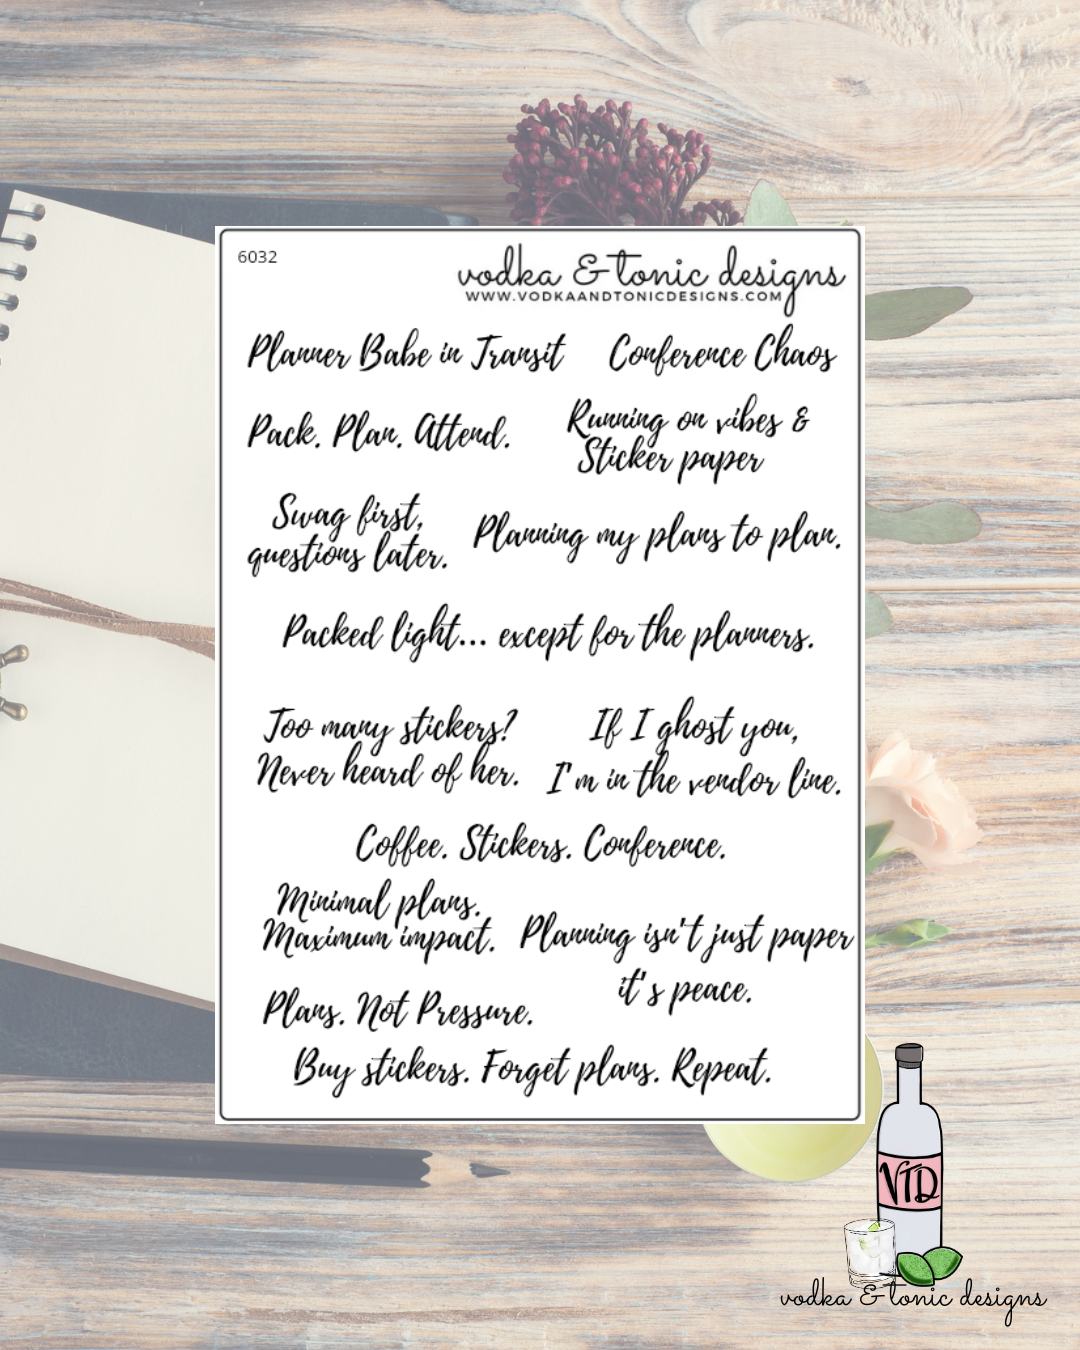 6032
vodka & tonic designs
WWW.VODKAANDTONICDESIGNS.COM
Planner Babe in Transit
Conference Chaos
Pack. Plan. Attend.
Running on vibes &
Sticker paper
Swag first,
questions later.
Planning my plans to plan.
Packed light... except for the planners.
Too many stickers?
Never heard of her.
If I ghost you,
I'm in the vendor line.
Coffee. Stickers. Conference.
Minimal plans.
Maximum impact.
Planning isn't just paper
it's peace.
Plans. Not Pressure.
Buy stickers. Forget plans. Repeat.
VTD
vodka & tonic designs